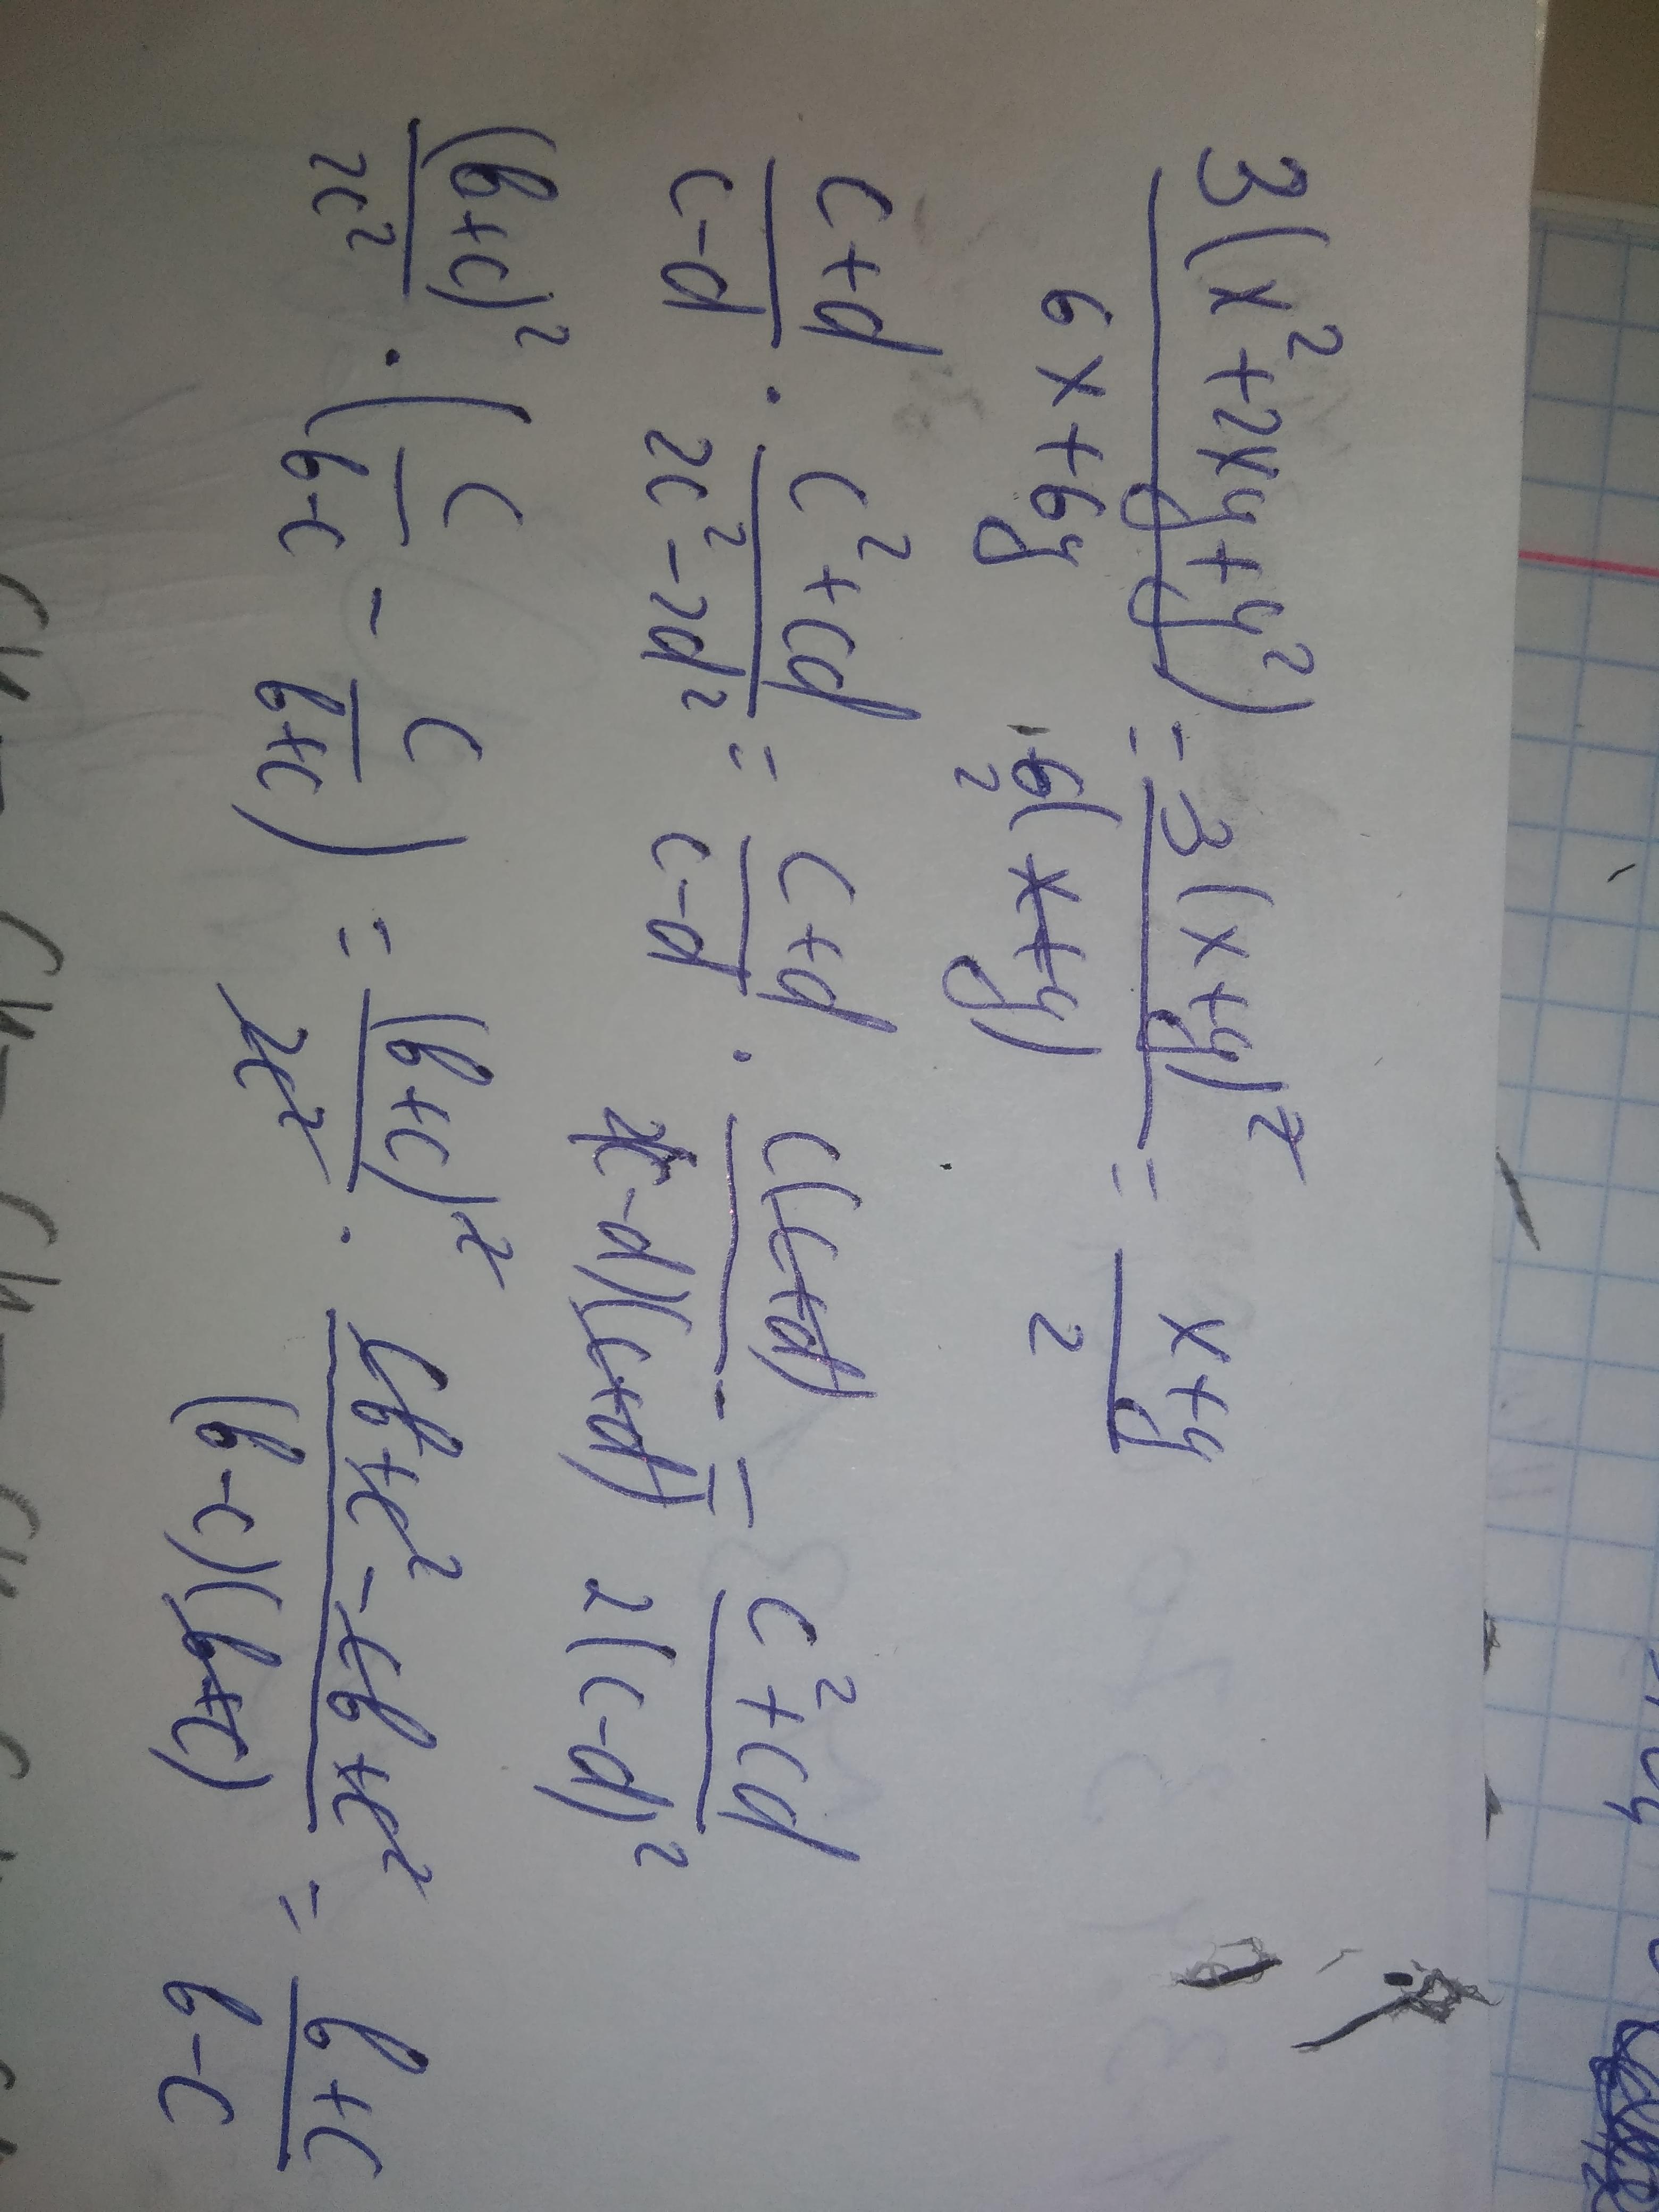 3(x²+2xy+y²)/(6x+6y) = 3(x+y)²/(6(x+y)) 2 = (x+y)/2
(c+d)/(c-d) · (c²+cd)/(2c²-2d²) = (c+d)/(c-d) · c(c+d)/(2(c-d)(c+d)) = (c²+cd)/(2(c-d)²)
(b+c)²/(2c²) · (c/(b-c) - c/(b+c)) = (b+c)²/(2c²) · (cb+c²-cb+c²)/((b-c)(b+c)) = (b+c)/(b-c)